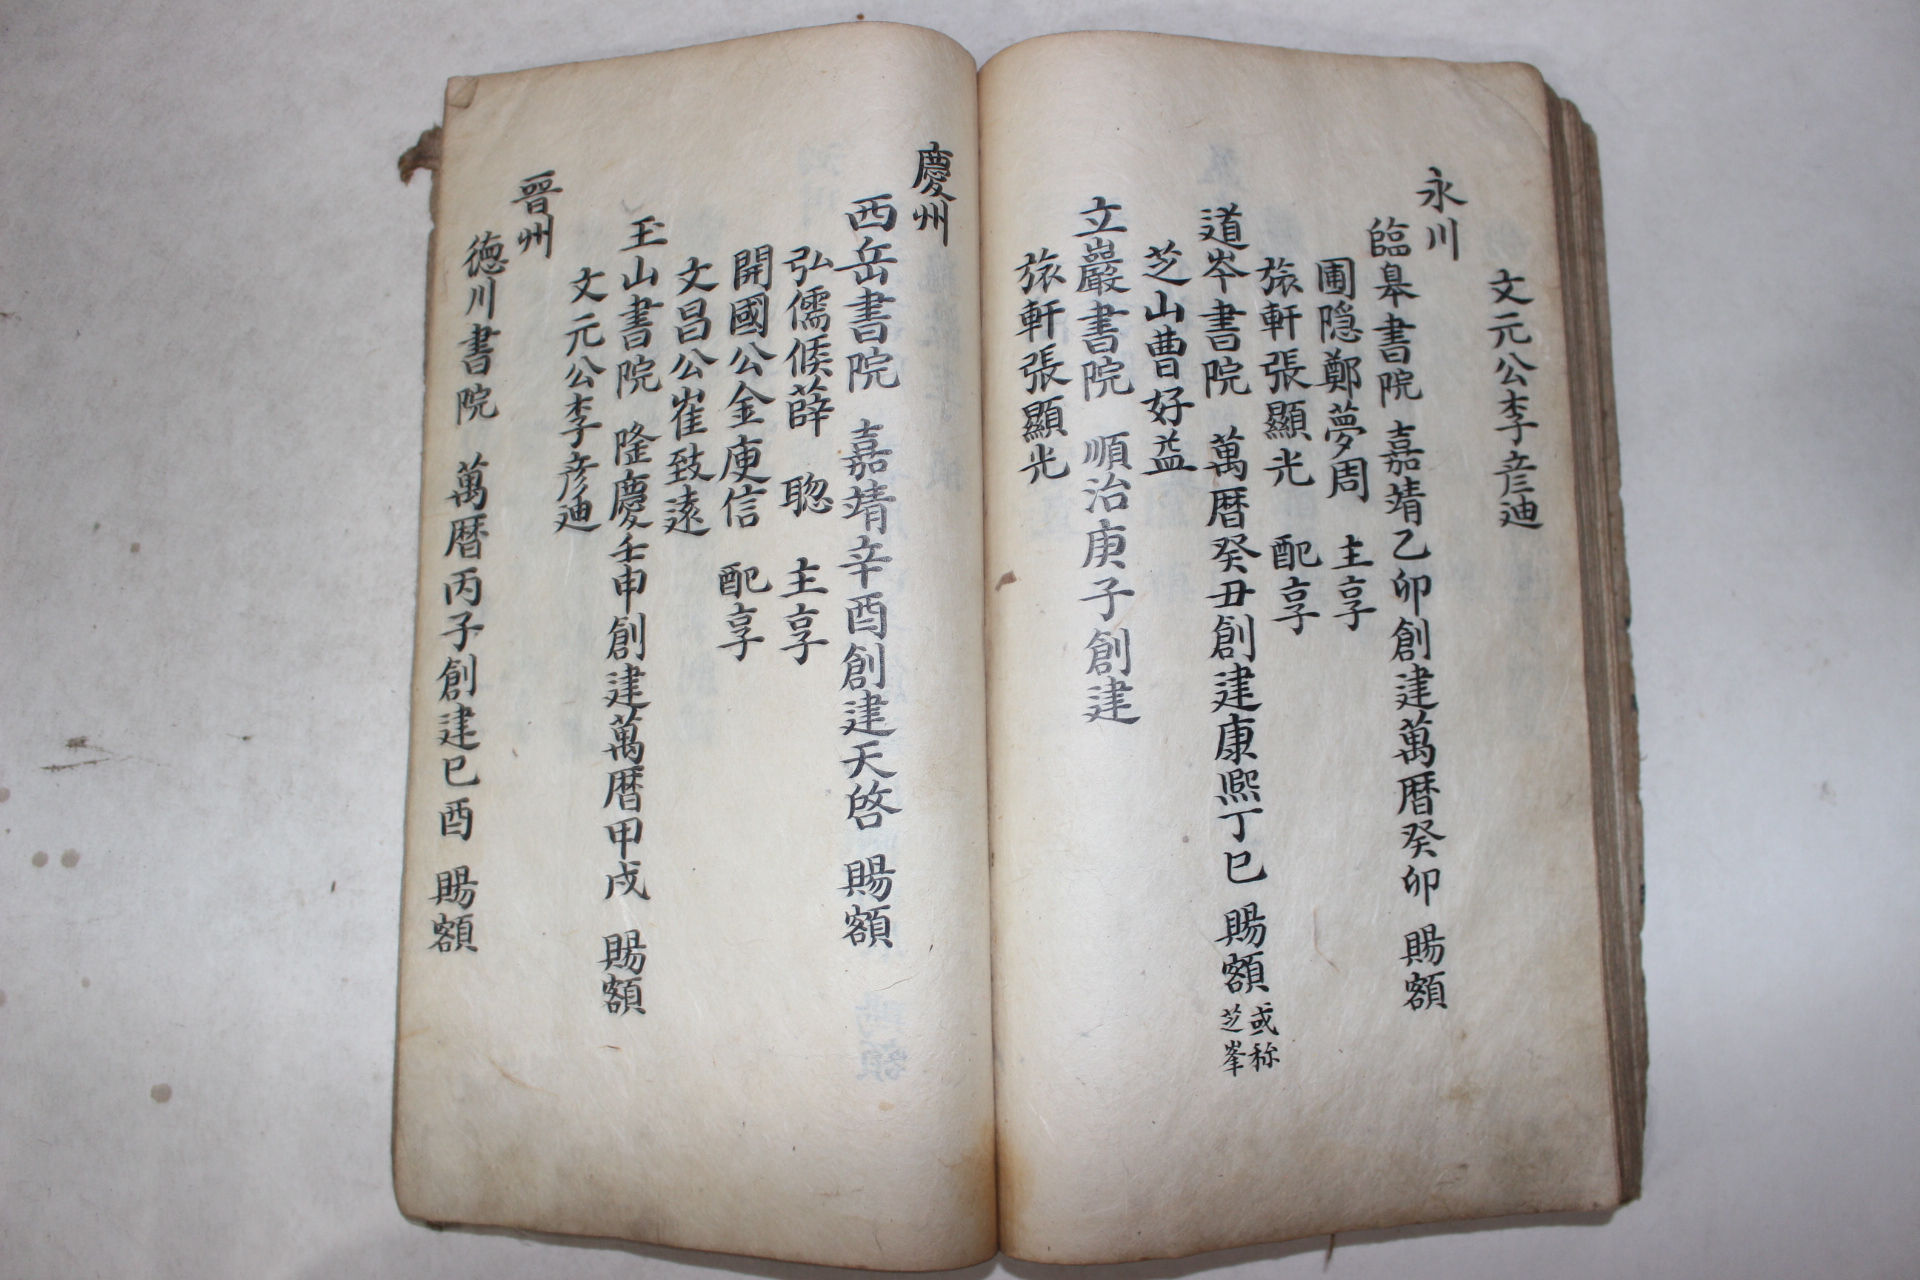 文元公李彦迪
永川
臨皋書院 嘉靖乙卯創建萬曆癸卯 賜額
圃隠鄭夢周 主享
旅軒張顯光 配享
道岑書院 萬曆癸丑創建康熙丁巳 賜額 或称芝峯
芝山曹好益
立巖書院 順治庚子創建
旅軒張顯光
慶州
西岳書院 嘉靖辛酉創建天啓 賜額
弘儒侯薛 聦 主享
開國公金庾信 配享
文昌公崔致遠
玉山書院 隆慶壬申創建萬暦甲戌 賜額
文元公李彦迪
晋州
徳川書院 萬暦丙子創建巳酉 賜額